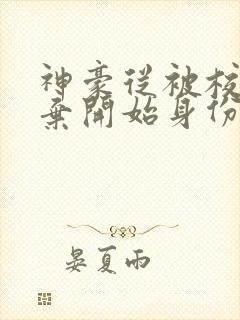 神豪從被校
棄開始身份
晏夏雨